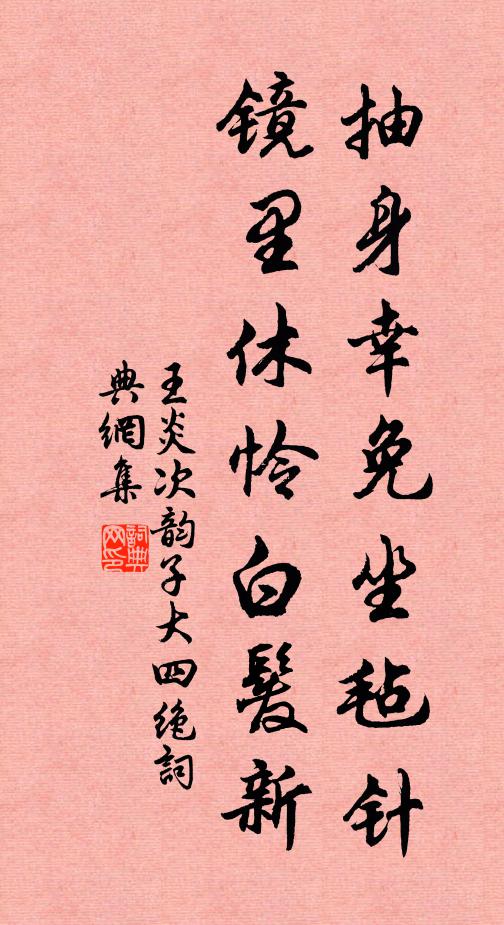 抽身幸免坐毡针
镜里休怜白髮新
王炎次韵子大四绝詞
典網集
詞典网印